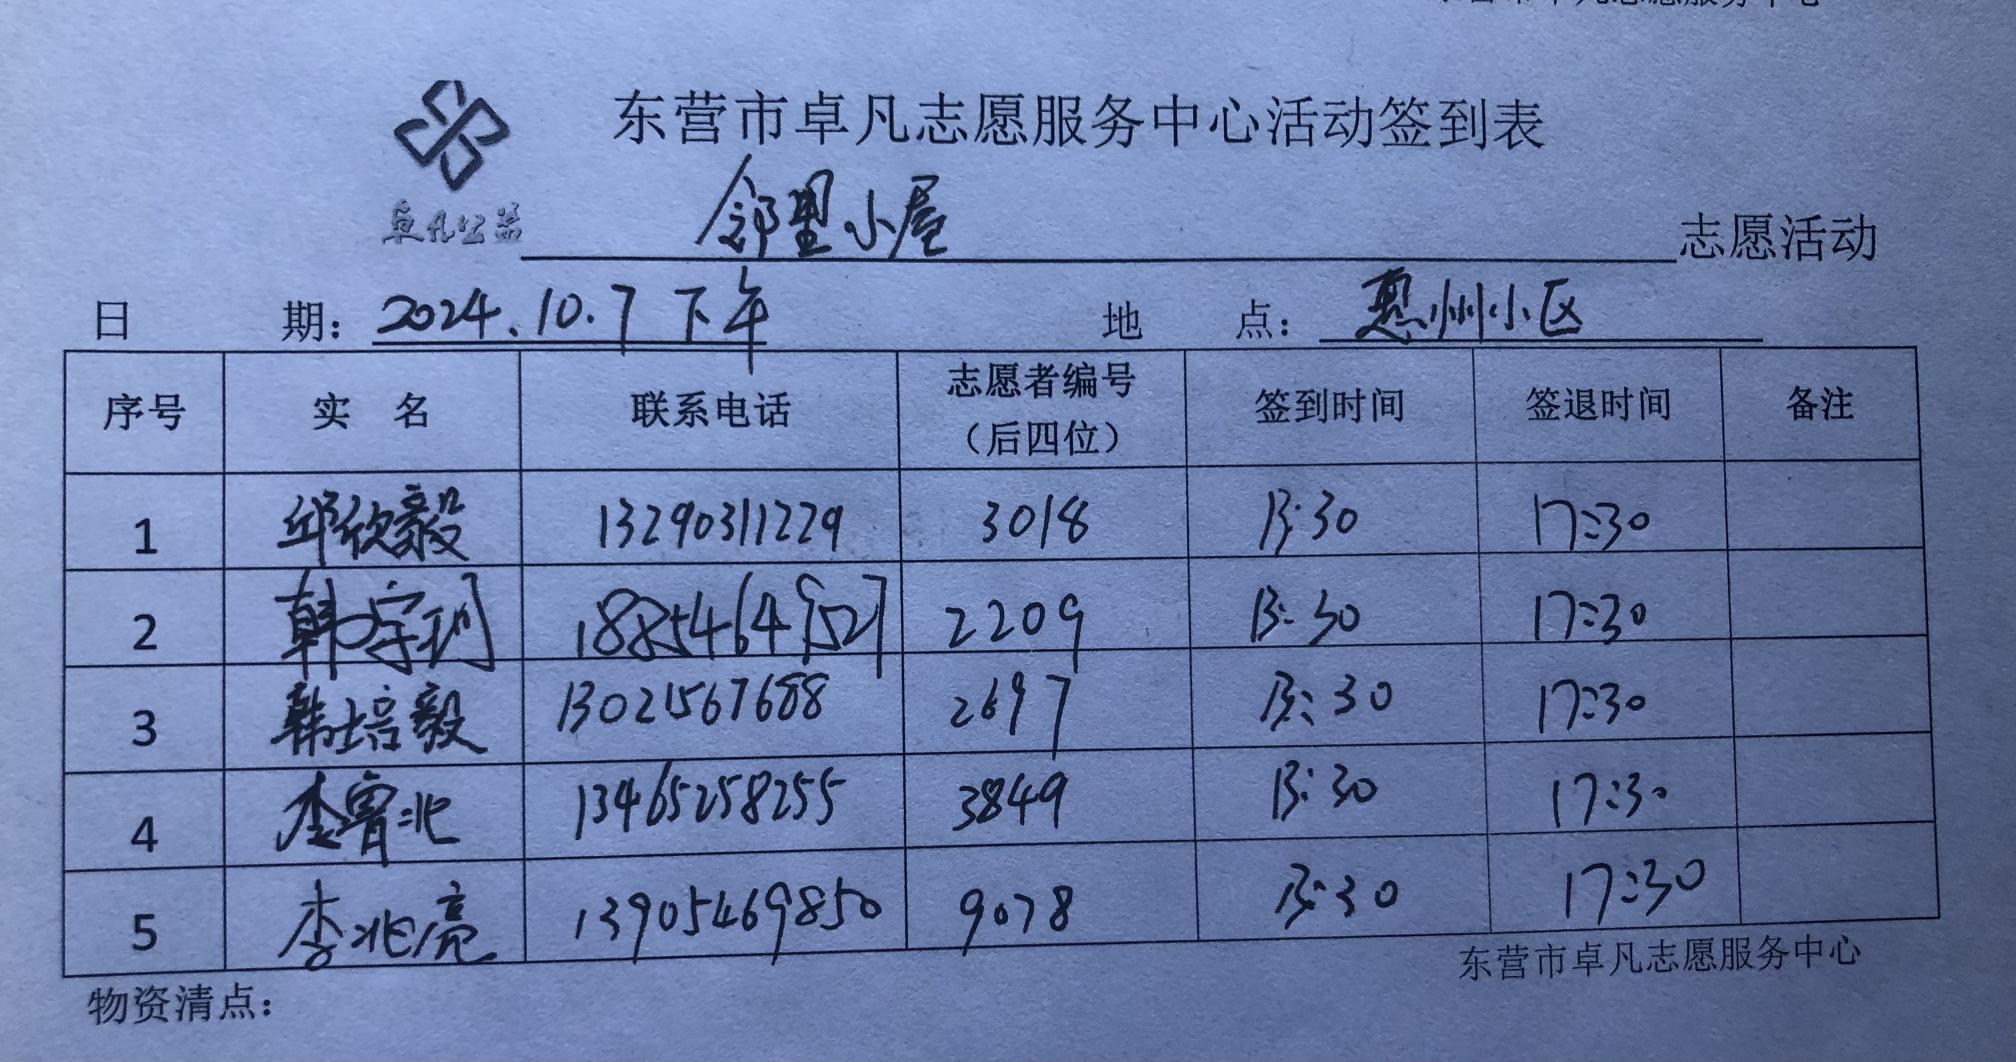 东营市卓凡志愿服务中心
东营市卓凡志愿服务中心活动签到表
卓凡公益
邻里小屋 志愿活动
日 期：2024.10.7 下午 地 点：惠州小区
序号 实 名 联系电话 志愿者编号（后四位） 签到时间 签退时间 备注
1 邱欣毅 13290311229 3018 13:30 17:30
2 韩宇 2209 13:30 17:30
3 韩培毅 13021567688 2697 13:30 17:30
4 李鲁北 13465258255 3849 13:30 17:30
5 李兆亮 13905469850 9078 13:30 17:30
东营市卓凡志愿服务中心
物资清点：